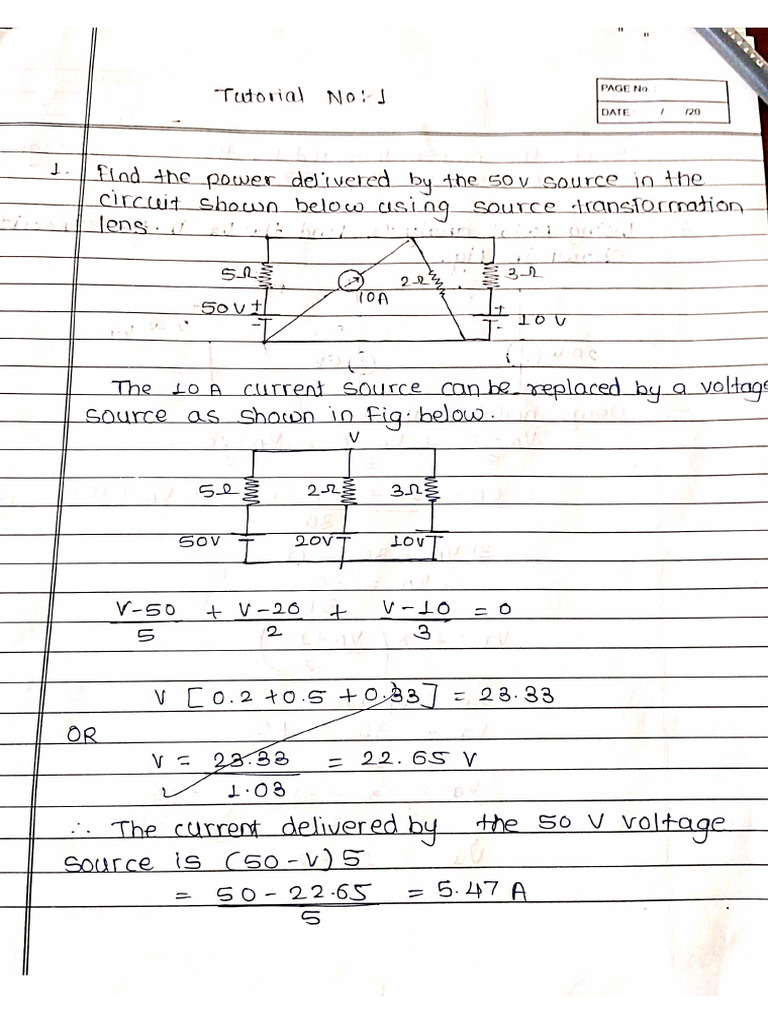 Tutorial No:-1
PAGE No :
DATE : / /20
1. Find the power delivered by the 50v source in the
circuit shown below using source transformation
lens.
5Ω
2Ω
3Ω
50V +
-
10A
+
-
10 V
The 10 A current source can be replaced by a voltage
source as shown in Fig. below.
V
5Ω 2Ω 3Ω
50V 20V 10V
V-50 + V-20 + V-10 = 0
5 2 3
V [0.2 +0.5 + 0.33] = 23.33
OR
V = 23.33 = 22.65 V
1.03
∴ The current delivered by the 50 V voltage
source is (50-V)5
= 50-22.65 = 5.47 A
5